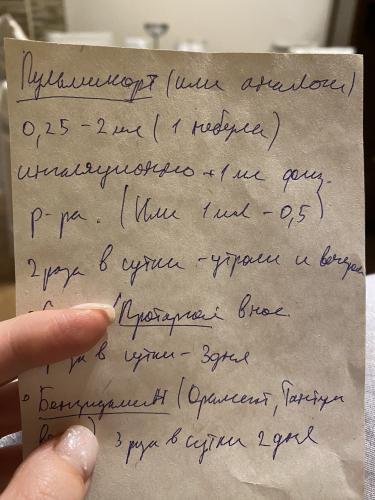 Пульмикорт (или аналоги)
0,25 - 2 мл (1 небула)
ингаляционно + 1 мл физ.
р-ра. (Или 1 мл - 0,5)
2 раза в сутки - утром и вечером
Протаргол в нос
в сутки - 3 дня
Бензидамин (Оралсепт, Тантум
3 раза в сутки 2 дня